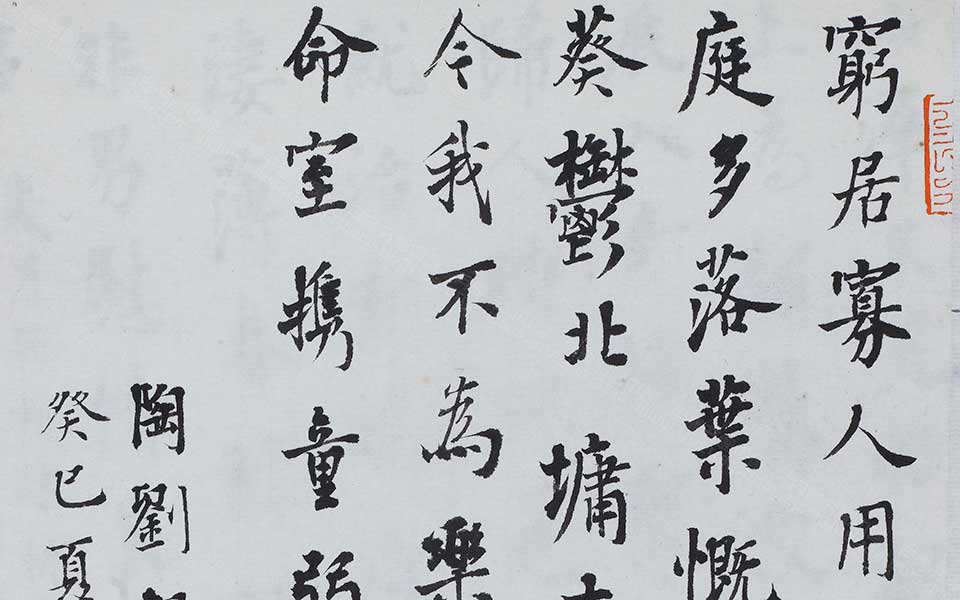 窮居寡人用
庭多落葉慨
葵鬱北墉
今我不為樂
命室攜童弱
陶劉
癸巳夏